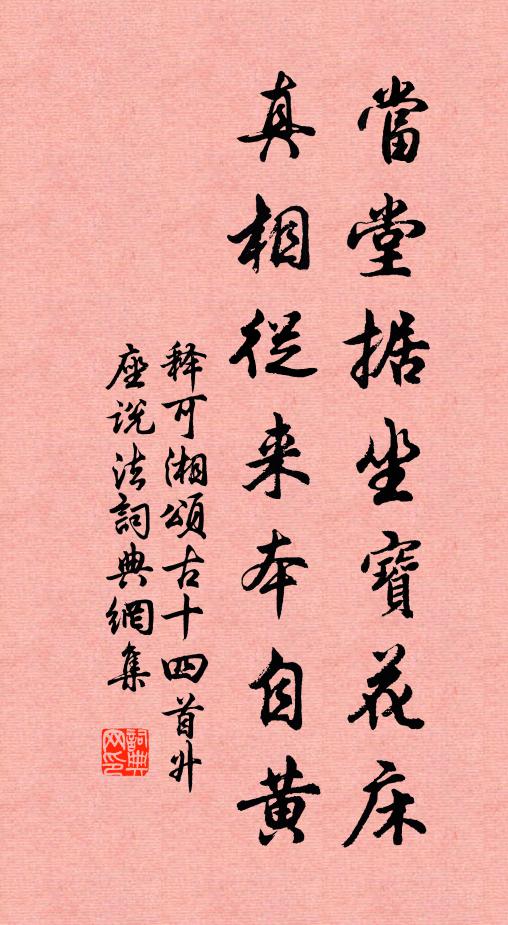 當堂据坐寶花床
真相從来本自黄
释可湘頌古十四首外
座说法詞典網集
詞典网印